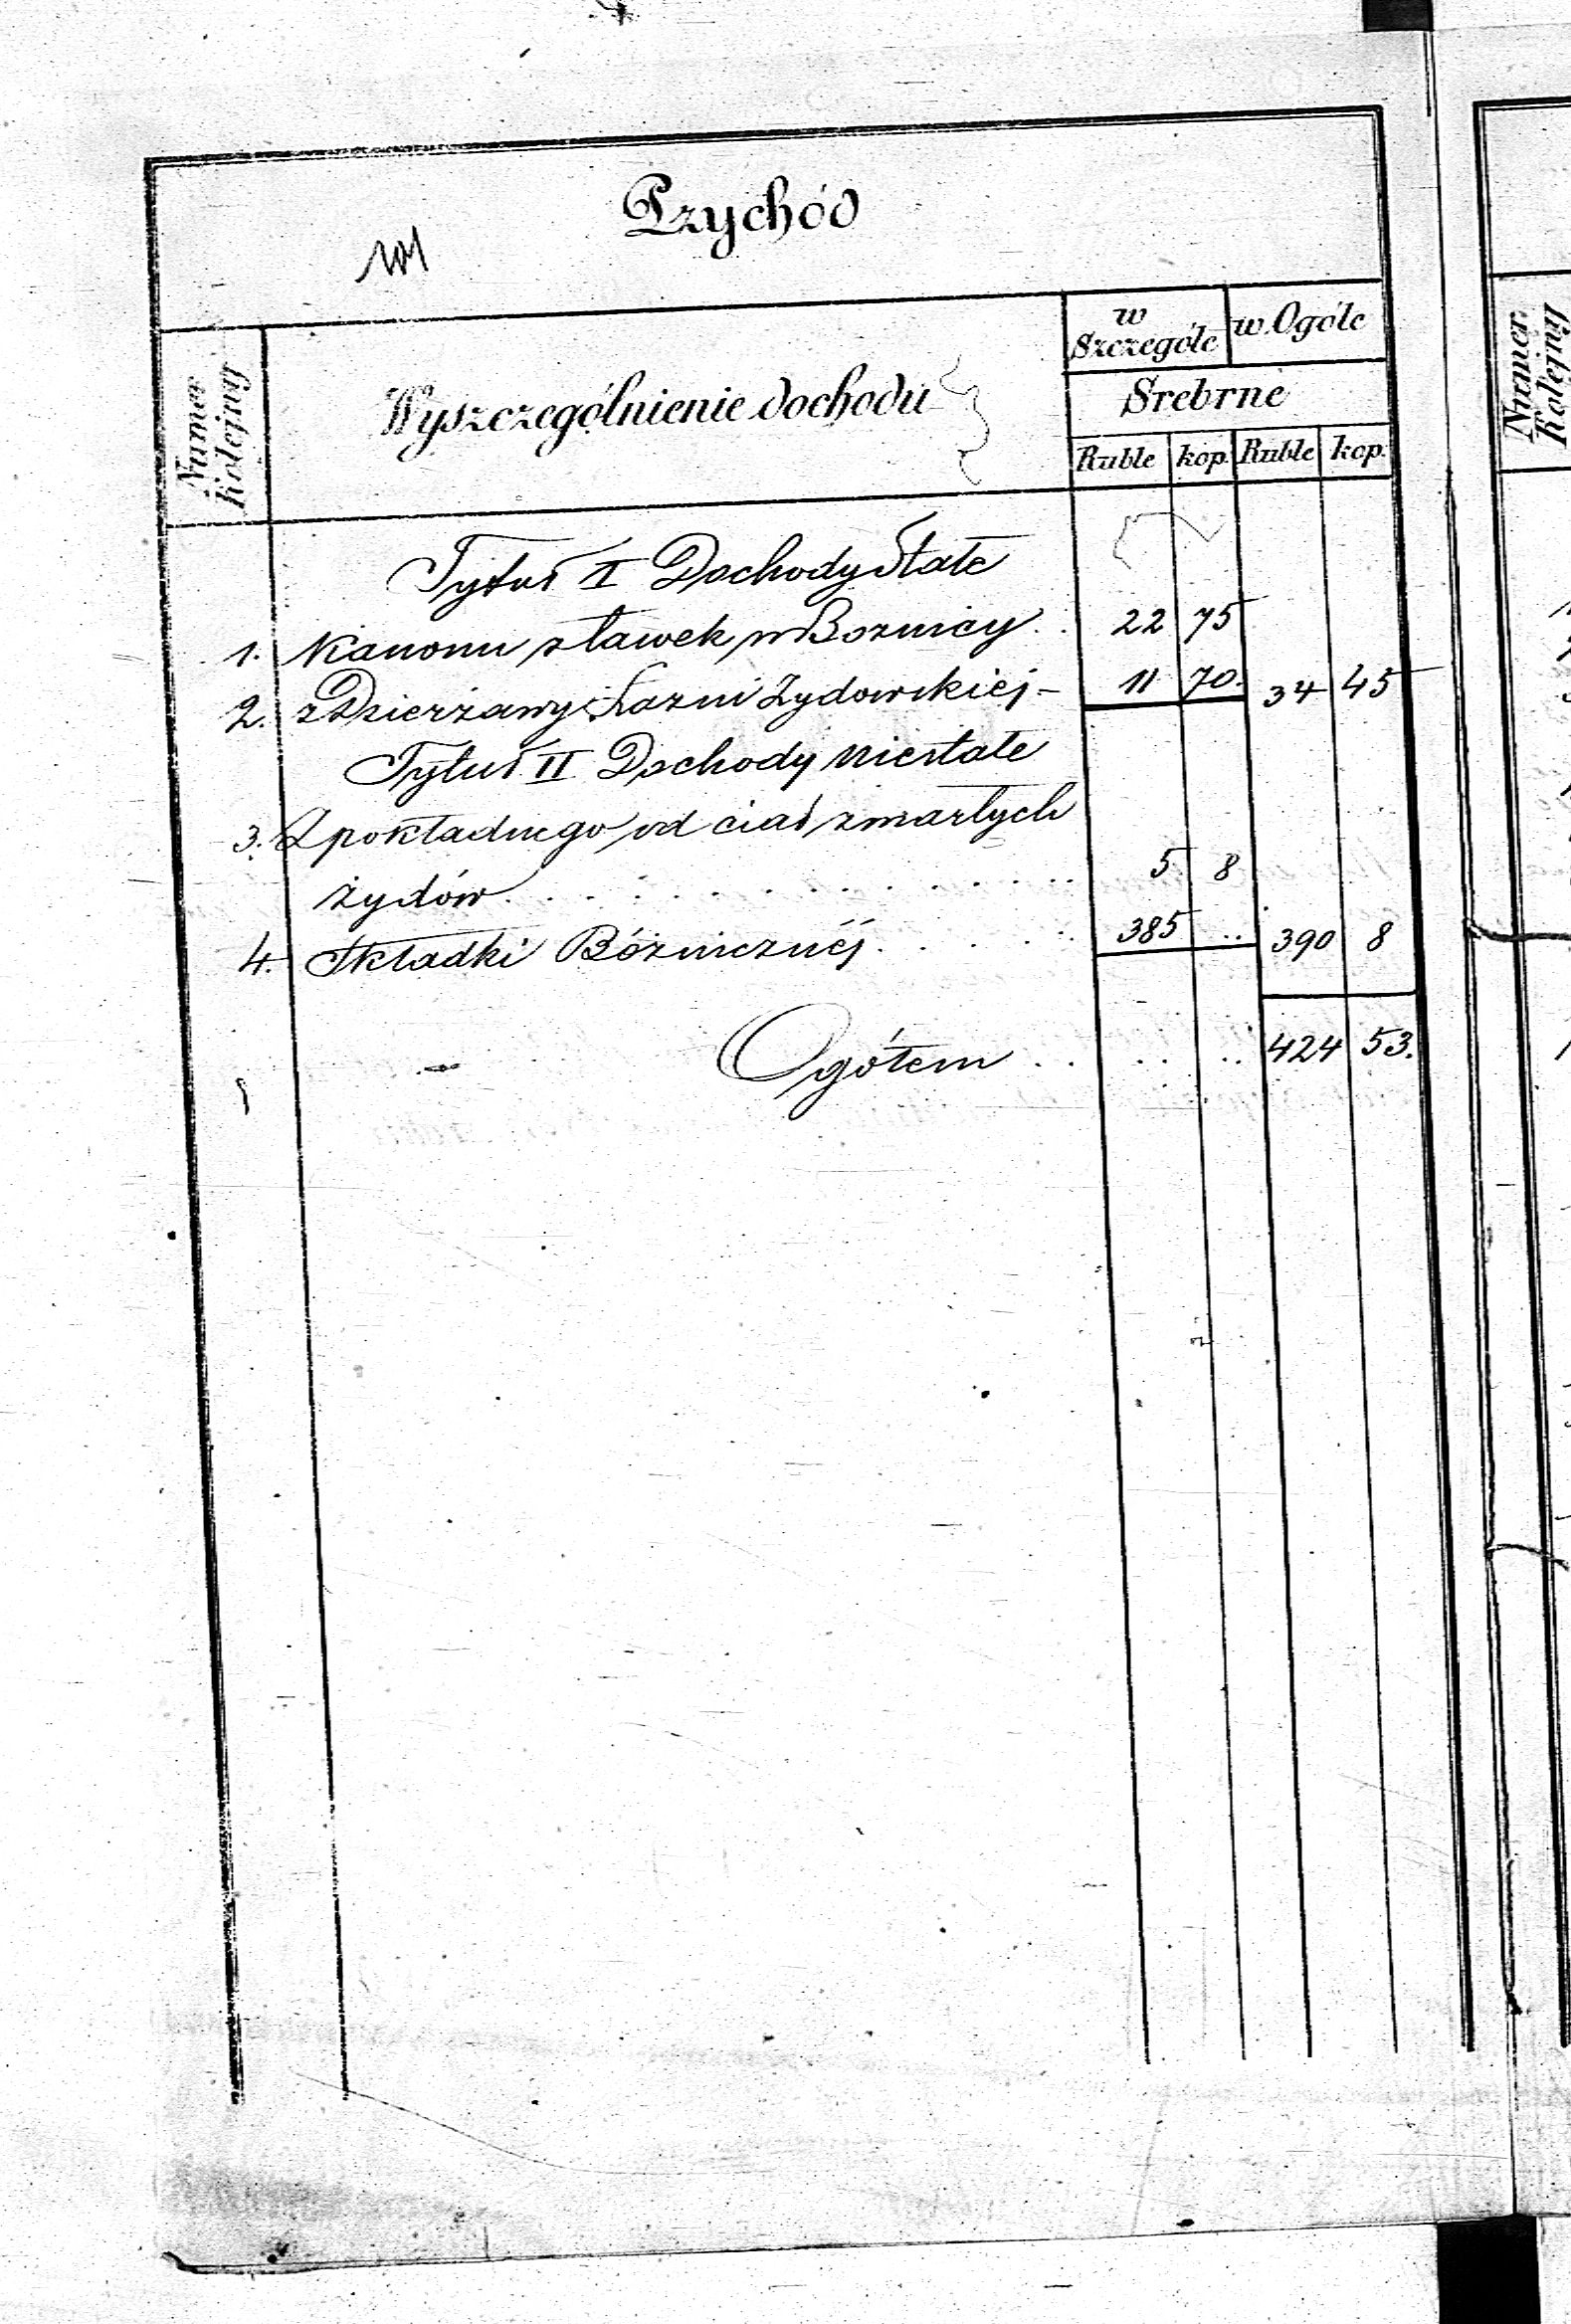 Przychód
101
Numer Kolejny
Wyszczególnienie dochodu
w Szczególe
w Ogóle
Srebrne
Ruble kop. Ruble kop.
Tytuł I Dochody Stałe
1. Kanonu z ławek w Boznicy . . 22 75
2. z Dzierżawy Łazni Żydowskiej – 11 70. 34 45
Tytuł II Dochody niestałe
3. Z pokładnego od ciał zmarłych
żydów . . . . . . . . . . . . 5 8
4. Składki Bóżnicznéj . . . . . . 385 .. 390 8
Ogółem . . . . . . 424 53.
Numer Kolejny